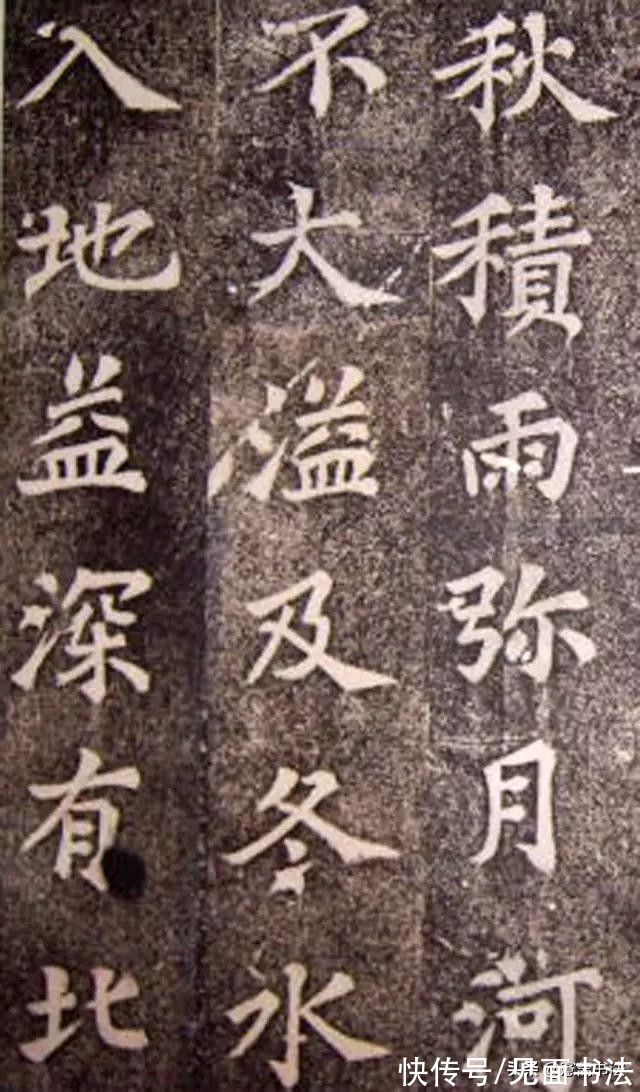 秋積雨弥月河
不大溢及冬水
入地益深有北
快传号/见面书法